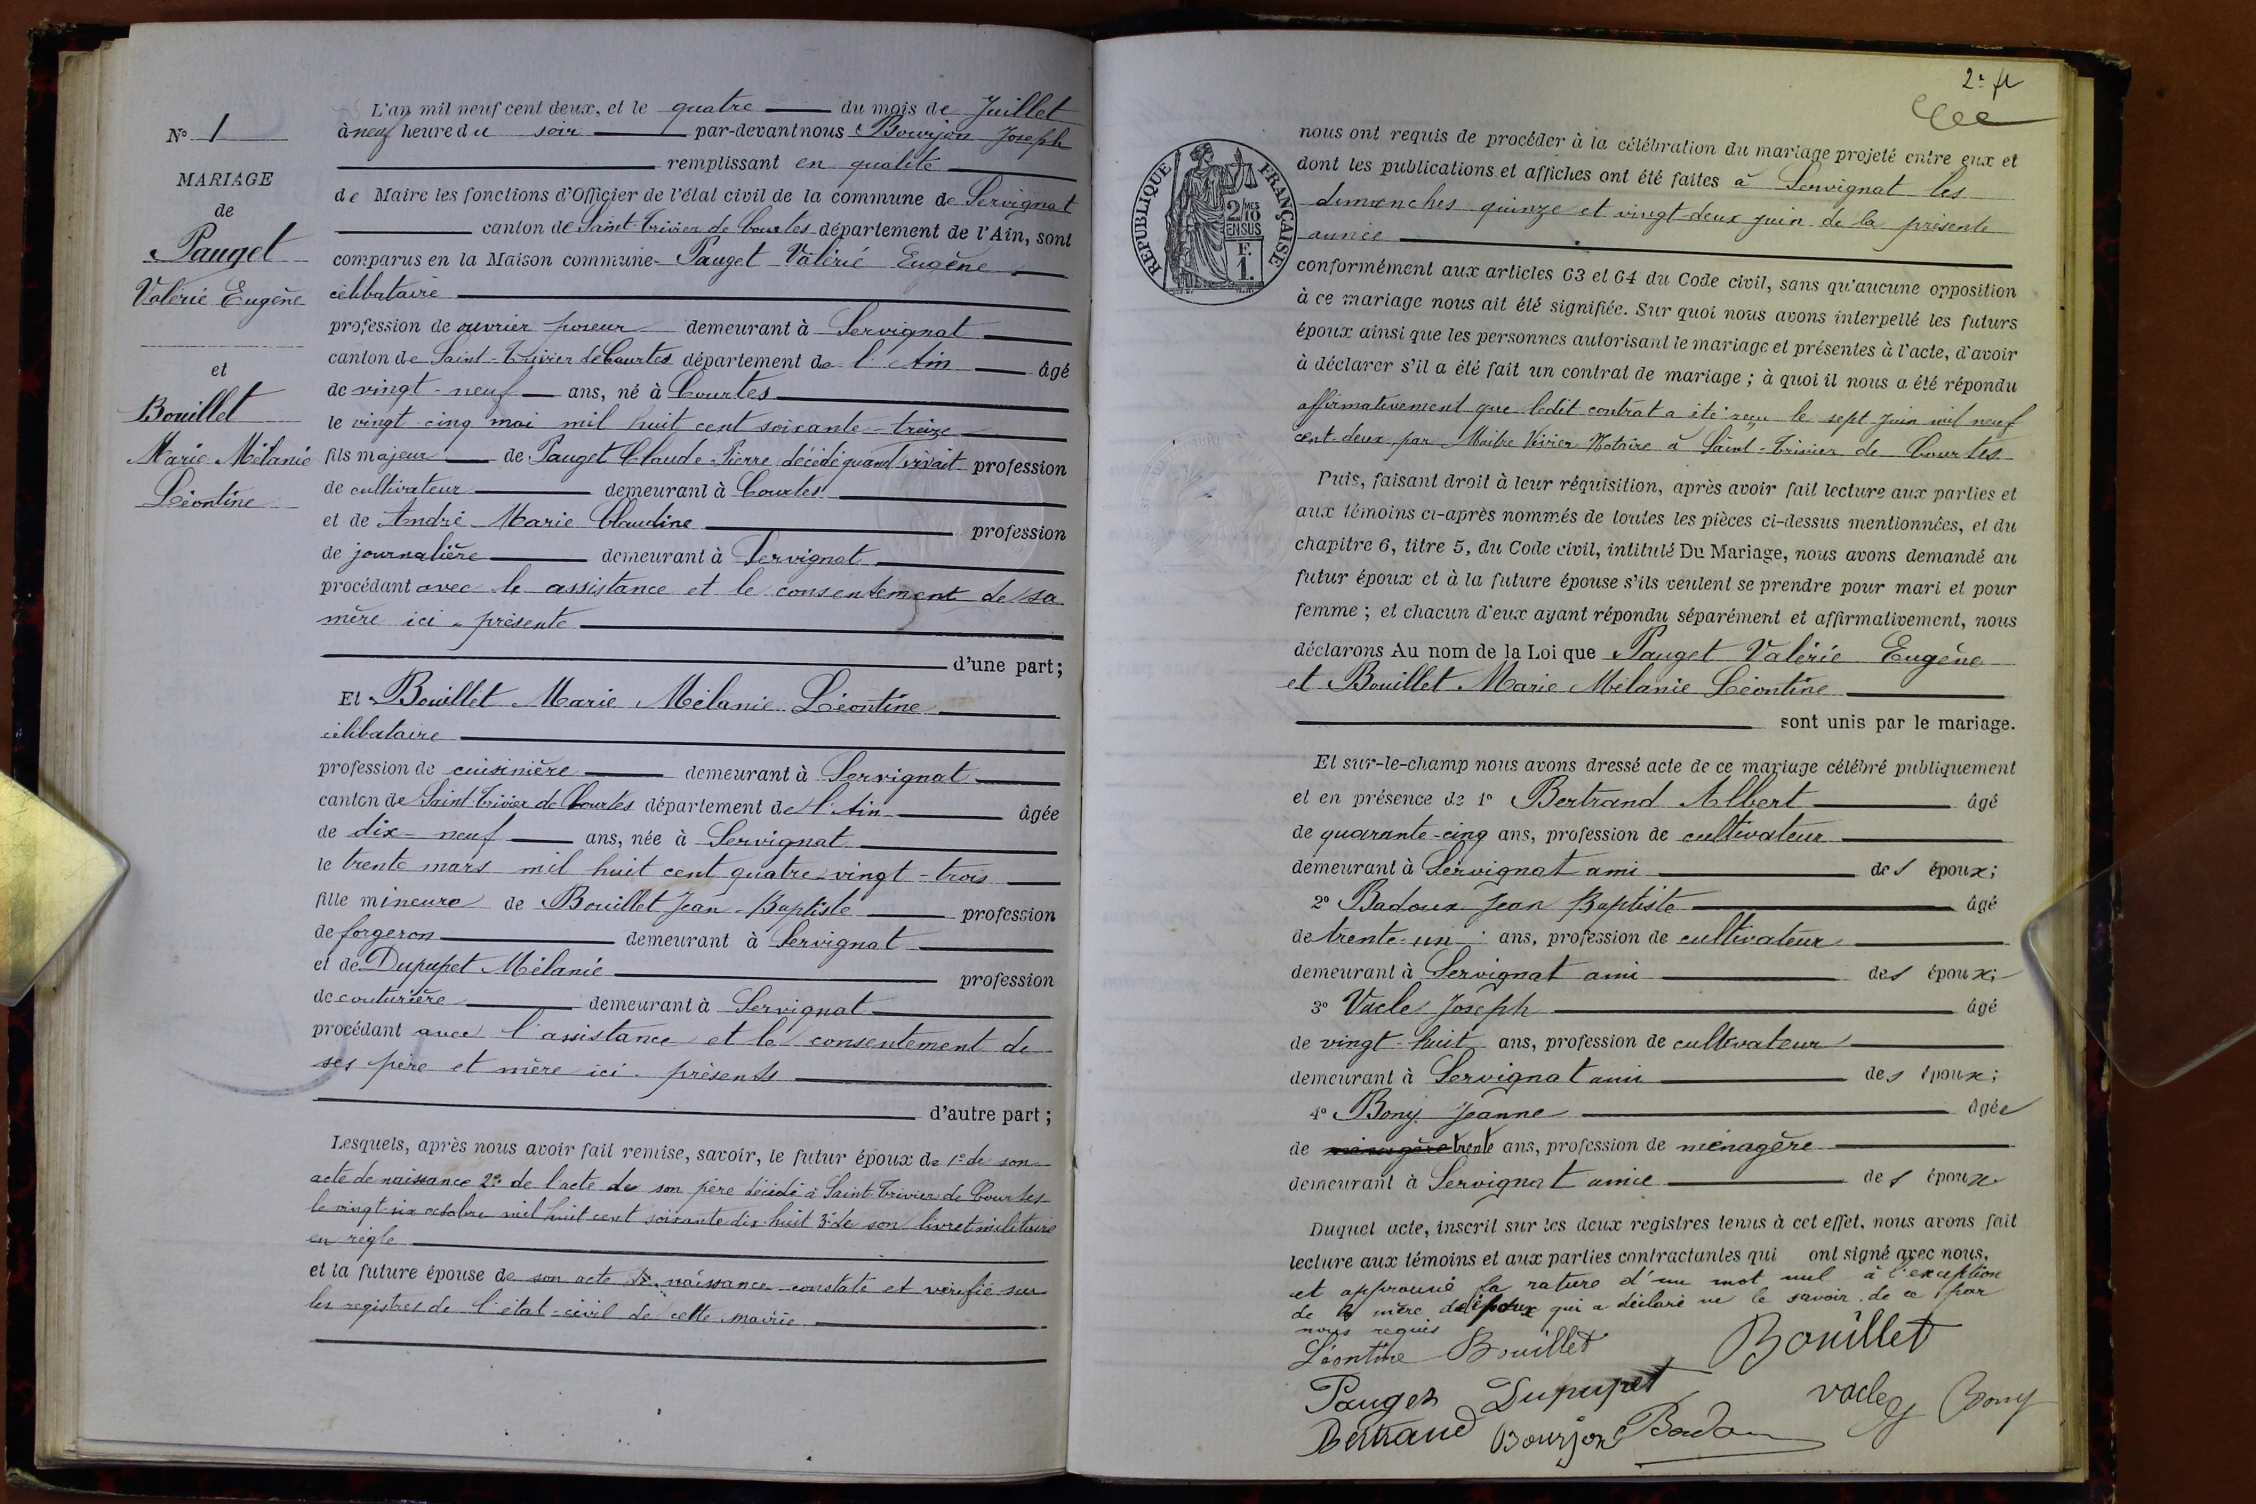 N° 1
MARIAGE
de
Pauget
Valérie Eugène
et
Bouillet
Marie Mélanie
Léontine
L'an mil neuf cent deux, et le quatre du mois de Juillet
à neuf heure du soir par-devant nous Bourjon Joseph
remplissant en qualité
de Maire les fonctions d'Officier de l'état civil de la commune de Servignat
canton de Saint-Trivier de Courtes département de l'Ain, sont
comparus en la Maison commune Pauget Valérié Eugène
célibataire
profession de ouvrier poseur demeurant à Servignat
canton de Saint-Trivier de Courtes département de l'Ain âgé
de vingt-neuf ans, né à Courtes
le vingt cinq mai mil huit cent soixante-treize
fils majeur de Pauget Claude Pierre décédé quand vivait profession
de cultivateur demeurant à Courtes
et de André Marie Claudine profession
de journalière demeurant à Servignat
procédant avec le assistance et le consentement de sa
mère ici présente
d'une part;
Et Bouillet Marie Mélanie Léontine
célibataire
profession de cuisinière demeurant à Servignat
canton de Saint-Trivier de Courtes département de l'Ain âgée
de dix-neuf ans, née à Servignat
le trente mars mil huit cent quatre-vingt-trois
fille mineure de Bouillet Jean-Baptiste profession
de forgeron demeurant à Servignat
et de Dupupet Mélanie profession
de couturière demeurant à Servignat
procédant avec l'assistance et le consentement de
ses père et mère ici présents
d'autre part;
Lesquels, après nous avoir fait remise, savoir, le futur époux de 1° de son
acte de naissance 2° de l'acte de son père décédé à Saint-Trivier de Courtes
le vingt-six octobre mil huit cent soixante dix-huit 3° de son livret militaire
en règle
et la future épouse de son acte de naissance constaté et vérifié sur
les registres de l'état-civil de cette mairie
2e
RÉPUBLIQUE FRANÇAISE
2/10MES
EN SUS
F.
1.
nous ont requis de procéder à la célébration du mariage projeté entre eux et
dont les publications et affiches ont été faites à Servignat les
dimanches quinze et vingt-deux juin de la présente
année
conformément aux articles 63 et 64 du Code civil, sans qu'aucune opposition
à ce mariage nous ait été signifiée. Sur quoi nous avons interpellé les futurs
époux ainsi que les personnes autorisant le mariage et présentes à l'acte, d'avoir
à déclarer s'il a été fait un contrat de mariage; à quoi il nous a été répondu
affirmativement que ledit contrat a été reçu le sept juin mil neuf
cent-deux par Maitre Vivier Notaire à Saint-Trivier de Courtes
Puis, faisant droit à leur réquisition, après avoir fait lecture aux parties et
aux témoins ci-après nommés de toutes les pièces ci-dessus mentionnées, et du
chapitre 6, titre 5, du Code civil, intitulé Du Mariage, nous avons demandé au
futur époux et à la future épouse s'ils veulent se prendre pour mari et pour
femme; et chacun d'eux ayant répondu séparément et affirmativement, nous
déclarons Au nom de la Loi que Pauget Valérie Eugène
et Bouillet Marie Mélanie Léontine
sont unis par le mariage.
Et sur-le-champ nous avons dressé acte de ce mariage célébré publiquement
et en présence de 1° Bertrand Albert âgé
de quarante-cinq ans, profession de cultivateur
demeurant à Servignat ami des époux;
2° Badoux Jean Baptiste âgé
de trente-un ans, profession de cultivateur
demeurant à Servignat ami des époux;
3° Vacle Joseph âgé
de vingt-huit ans, profession de cultivateur
demeurant à Servignat ami des époux;
4° Bony Jeanne âgée
de ménagère trente ans, profession de ménagère
demeurant à Servignat amie des époux
Duquel acte, inscrit sur les deux registres tenus à cet effet, nous avons fait
lecture aux témoins et aux parties contractantes qui ont signé avec nous,
et approuvé la rature d'un mot nul à l'exception
de la mère de l'époux qui a déclaré ne le savoir de ce par
nous requis
Léontine Bouillet Bouillet
Pauget Dupupet Vacle J Bony
Bertrand Bourjon Badoux